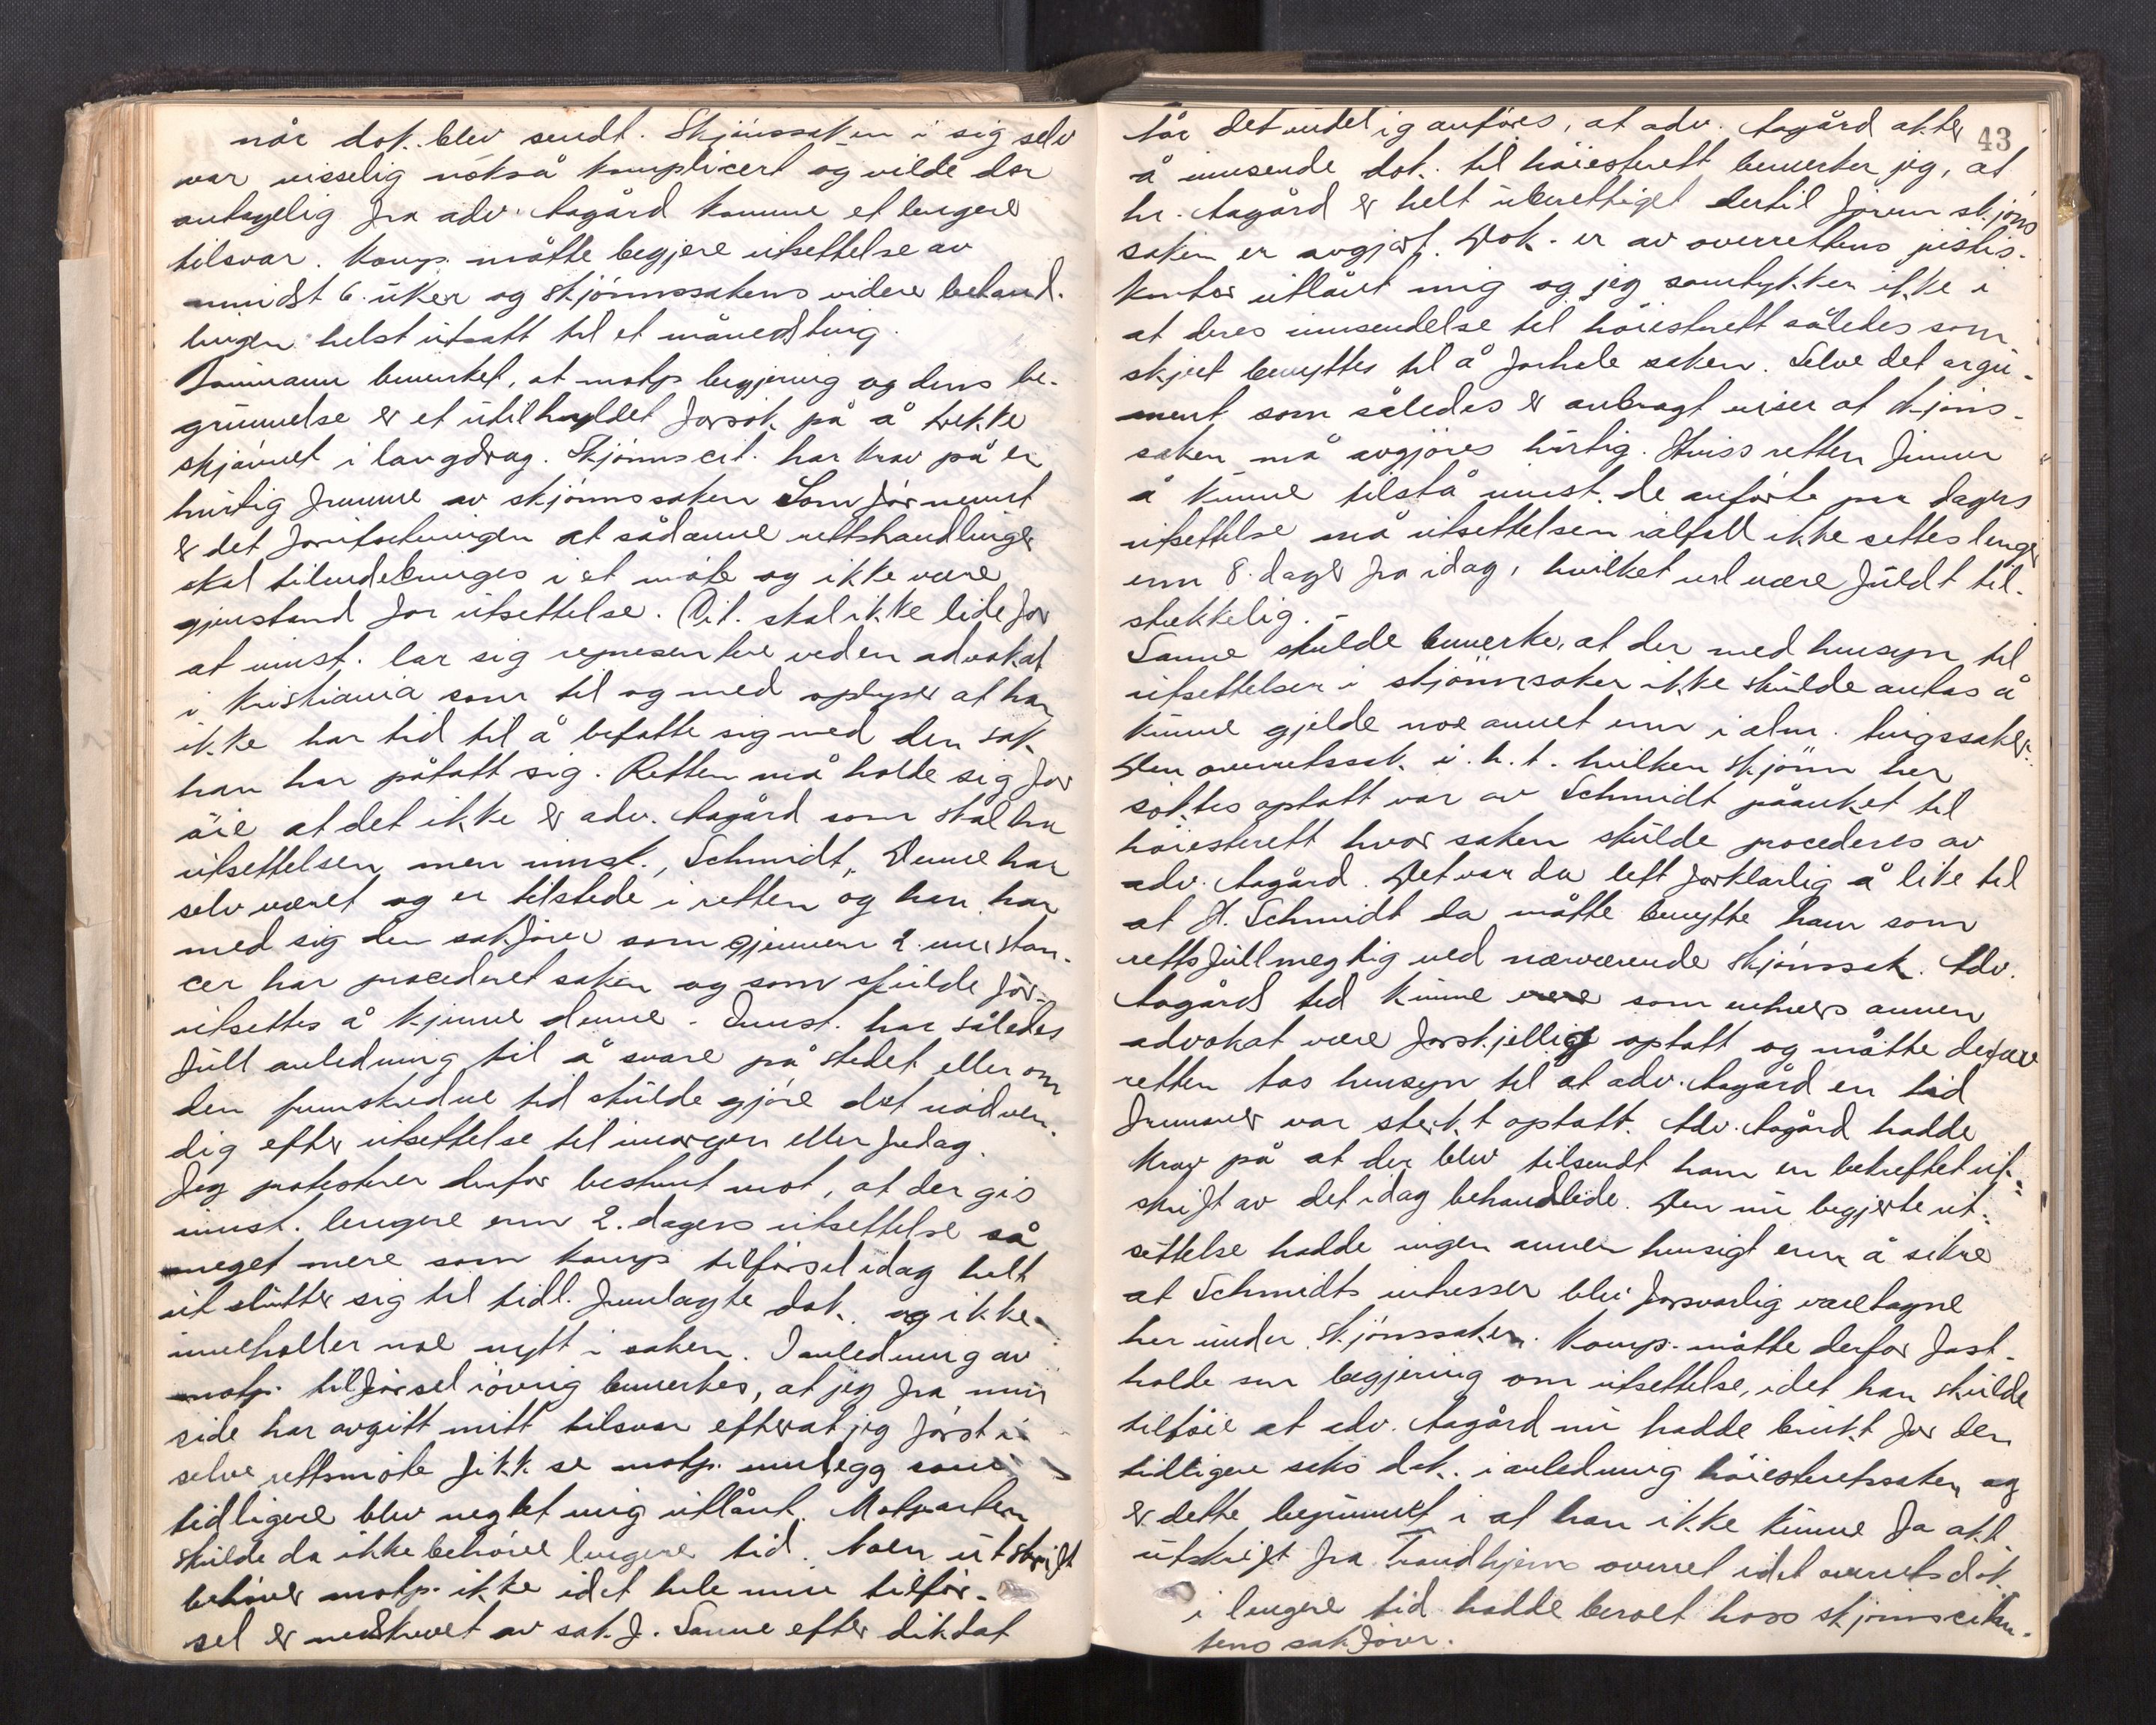 når dok. blev sendt. Skjönssaken i sig selv
var visselig nokså komplicert og vilde der
antagelig fra adv. Aagård komme et lengere
tilsvar. Komp. måtte begjere utsettelse av
minst 6 uker og skjönnssakens videre behand-
lingen helst utsatt til et månedsting.
bemerket, at motp. begjering og dens be-
grunnelse er et utilhyllet forsök på å trekke
skjönnet i langdrag. Skjönnscit. har krav på en
hurtig fremme av skjönnssaken Som för nevnt
er det forutsetningen at sådanne rettshandlinger
skal tilendebringes i et möte og ikke være
gjenstand for utsettelse. Cit. skal ikke lide for
at innst. lar sig representere ved en advokat
i Kristiania som til og med oplyser at han
ikke har tid til å befatte sig med den sak
han har påtatt sig. Retten må holde sig for
öie at det ikke er adv. Aagård som skal ha
utsettelsen, men innst., Schmidt. Denne har
selv været og er tilstede i retten og han har
med sig den sakförer som gjennem 2 instan-
cer har procederet saken og som skulde for-
utsettes å kjenne denne. Innst. har således
full anledning til å svare på stedet eller om
den fremskredne tid skulde gjöre det nödven-
dig efter utsettelse til imorgen eller fredag.
Jeg protesterer derfor bestemt mot, at der gis
innst. lengere enn 2. dagers utsettelse så
meget mere som komp. tilförsel idag helt
ut slutter sig til tidl. fremlagte dok. og ikke
inneholder noe nytt i saken. I anledning av
motp. tilförsel iövrig bemerkes, at jeg fra min
side har avgitt mitt tilsvar efterat jeg först i
selve rettsmöte fikk se motp. innlegg som
tidligere blev negtet mig utlånt. Motparten
skulde da ikke behöve lengere tid. Noen utskrift
behöver motp. ikke idet hele min tilför-
sel er nedskrevet av sakf. Sanne efter diktat
43
når det endelig anföres, at adv. Aagård akter
å innsende dok. til höiesterett bemerker jeg, at
hr. Aagård er helt uberettiget dertil förenn skjöns
saken er avgjort. Dok. er av overrettens justis-
kontor utlånt mig og jeg samtykker ikke i
at deres innsendelse til höiesterett således som
skjeet benyttes til å forhale saken. Selve det argu-
ment som således er anbragt viser at skjöns-
saken må avgjöres hurtig. Hviss retten finner
å kunne tilstå innst. de anförte par dagers
utsettelse må utsettelsen ialfall ikke settes lenger
enn 8. dager fra idag, hvilket vil være fuldt til-
strekkelig.
Sanne skulde bemerke, at der med hensyn til
utsettelser i skjönnsaker ikke skulde antas å
kunne gjelde noe annet enn i alm. tingssaker.
Den overretssak i. h. t. hvilken skjönn her
söktes optatt var av Schmidt påanket til
höiesterett hvor saken skulde procederes av
adv. Aagård. Det var da lett forklarlig å like til
at H. Schmidt da måtte benytte ham som
rettsfullmegtig ved nærværende skjönssak. Adv.
Aagårds tid kunne som enhver annen
advokat være forskjellig optatt og måtte der for
retten tas hensyn til at adv. Aagård en tid
fremover var sterkt optatt. Adv. Aagård hadde
krav på at der blev tilsendt ham en bekreftet ut-
skrift av det idag behandlede. Den nu begjerte ut-
settelse hadde ingen annen hensigt enn å sikre
at Schmidts interesser blev forsvarlig varetagne
her under skjönssaken. Komp. måtte derfor fast-
holde sin begjering om utsettelse, idet han skulde
tilföie at adv. Aagård nu hadde brukt for den
tidligere saks dok. i anledning höiesteretssaken og
er dette begrunnet i at han ikke kunne fa att
utskrift fra Trondhjems overret idet overretsdok.
i lengere tid hadde beroet hoss skjönscitan-
tens sakförer.